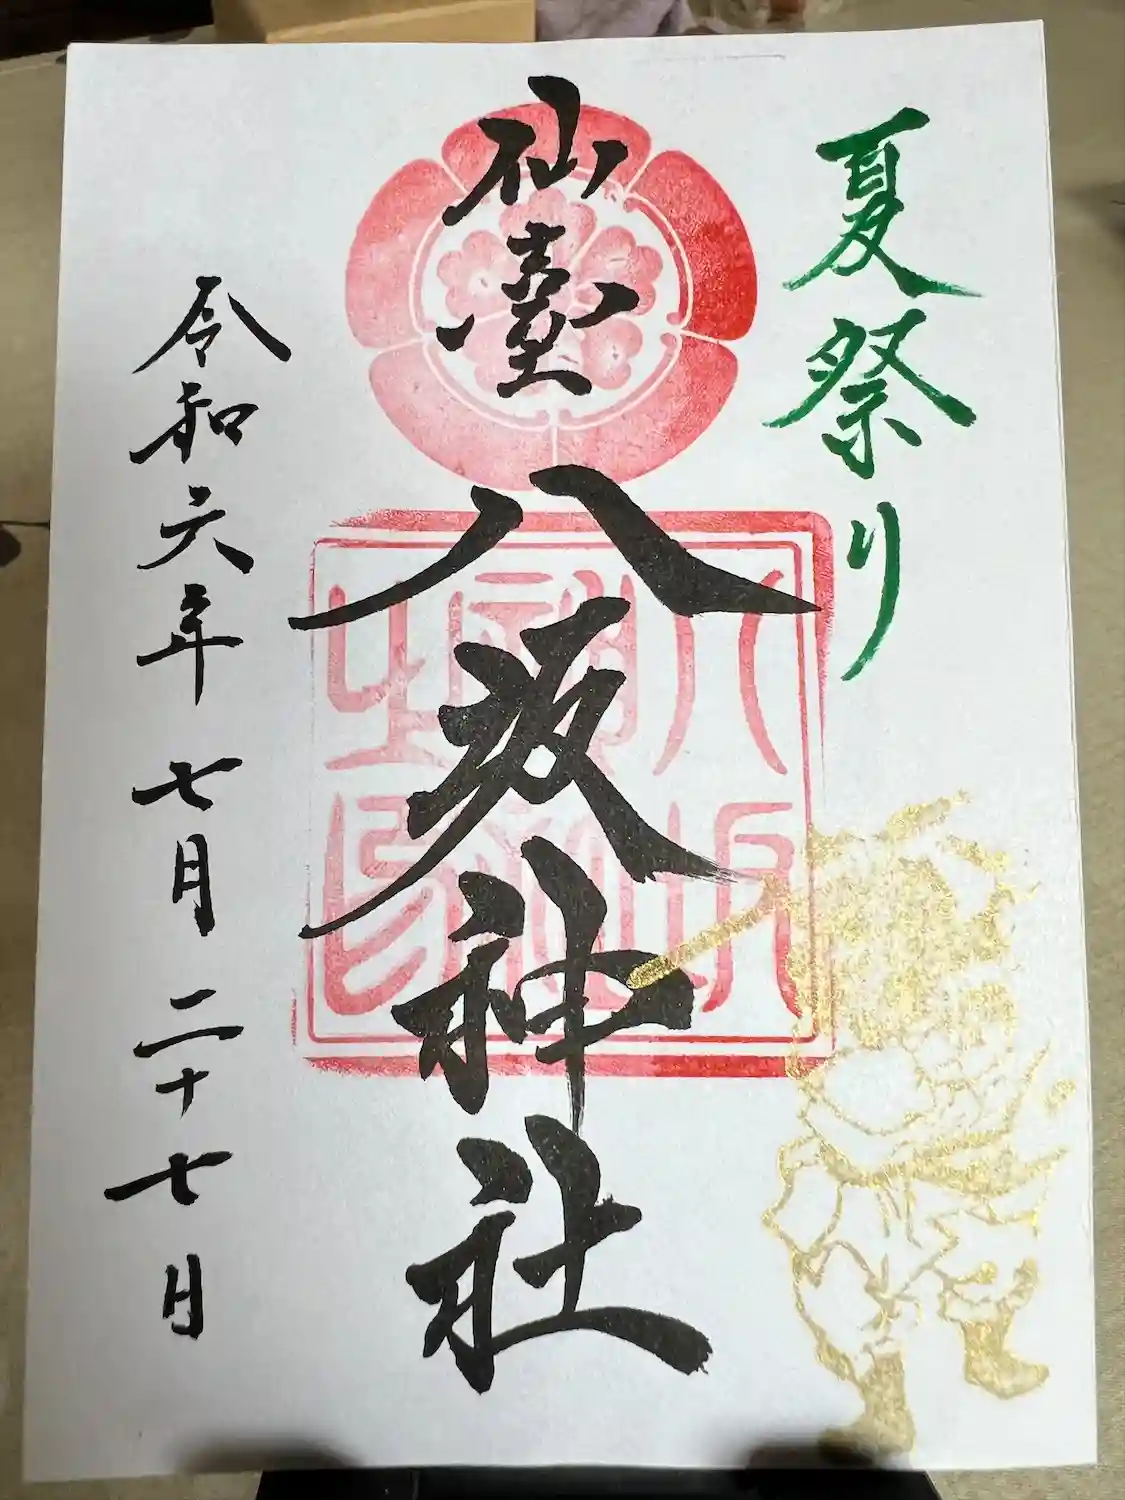 夏祭り
仙臺
八坂神社
八坂神社之印
令和六年七月二十七日